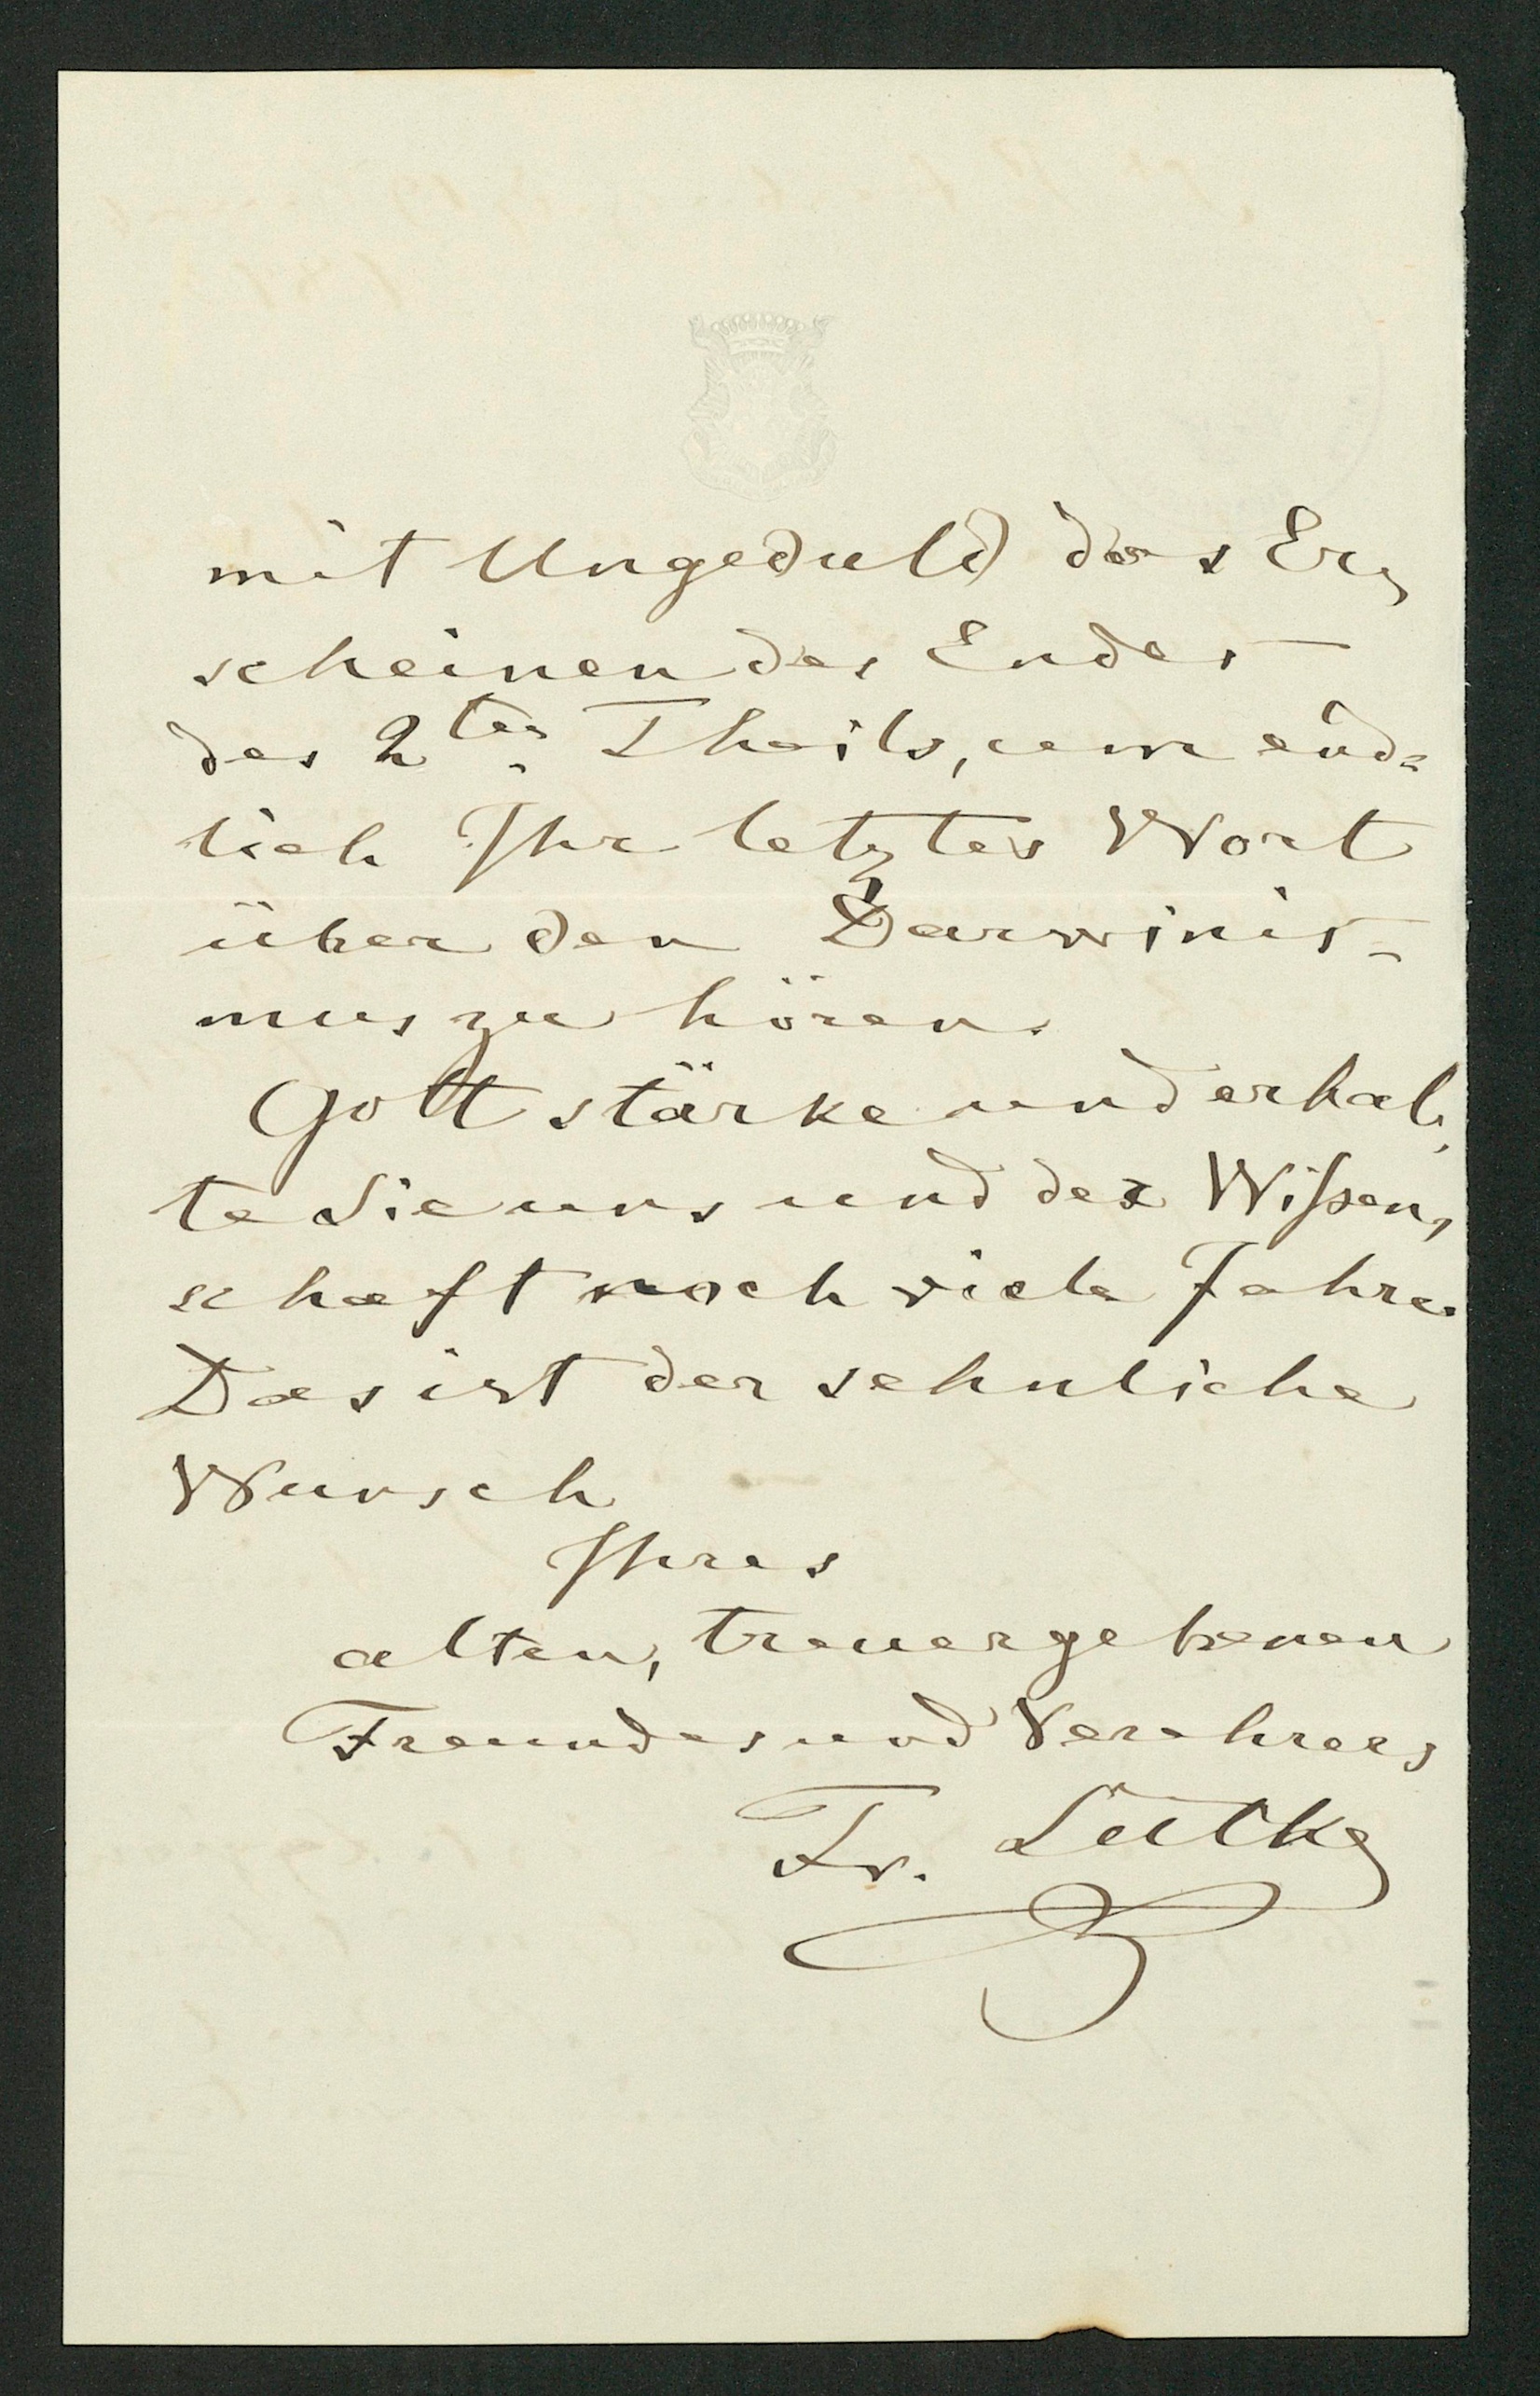 mit Ungeduld das Er-
scheinen des Endes
des 2tes Theils, um end-
lich Ihr letztes Wort
über den Darwinis-
mus zu hören.
Gott stärke und erhal-
te Sie uns und der Wißen-
schaft noch viele Jahre.
Das ist der sehnliche
Wunsch
Ihres
alten, treuergebenen
Freundes und Verehrers
Fr. Lütke